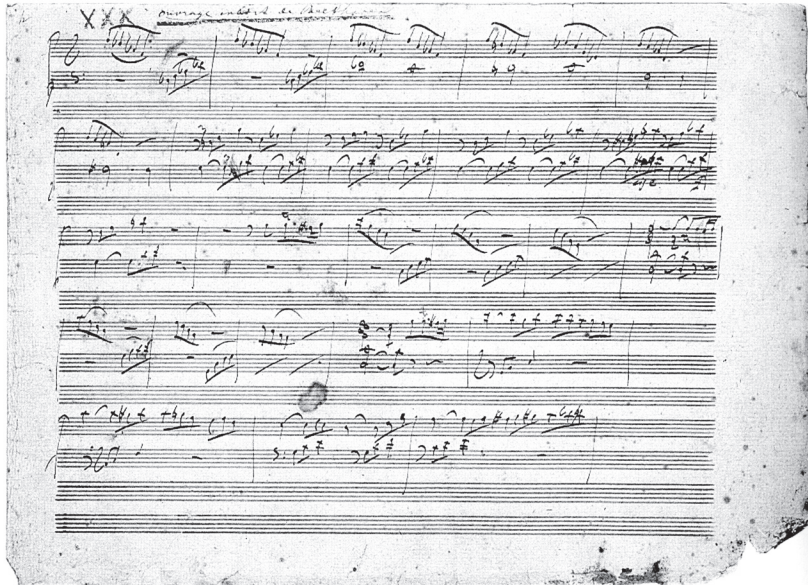 XXX ouvrage inédit de Beethoven